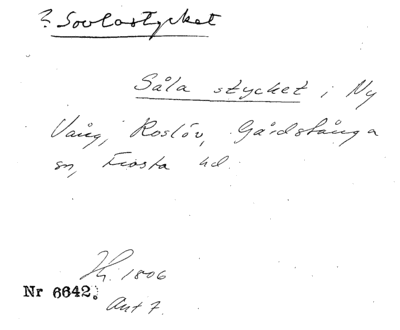 ? Sovlastycket
Såla stycket i Ny
Vång, Roslöv, Gårdstånga
sn, Frosta hd.
1806
Nr 6642.
Akt 7.